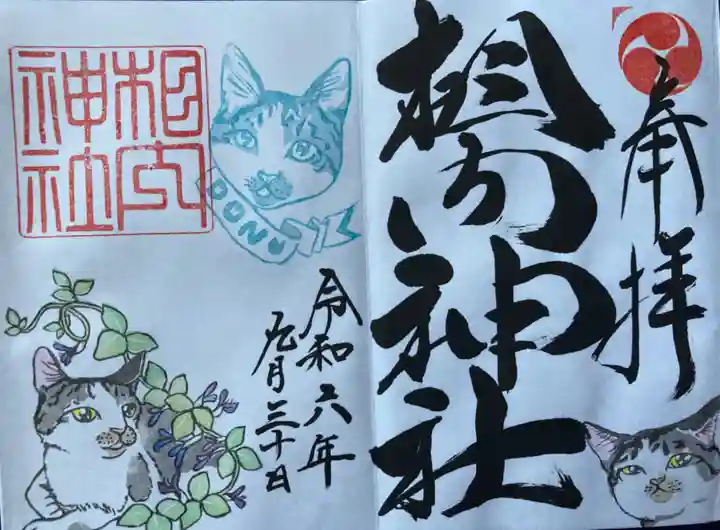 奉拝
相内神社
相内神社
DONU
令和六年
九月三十日